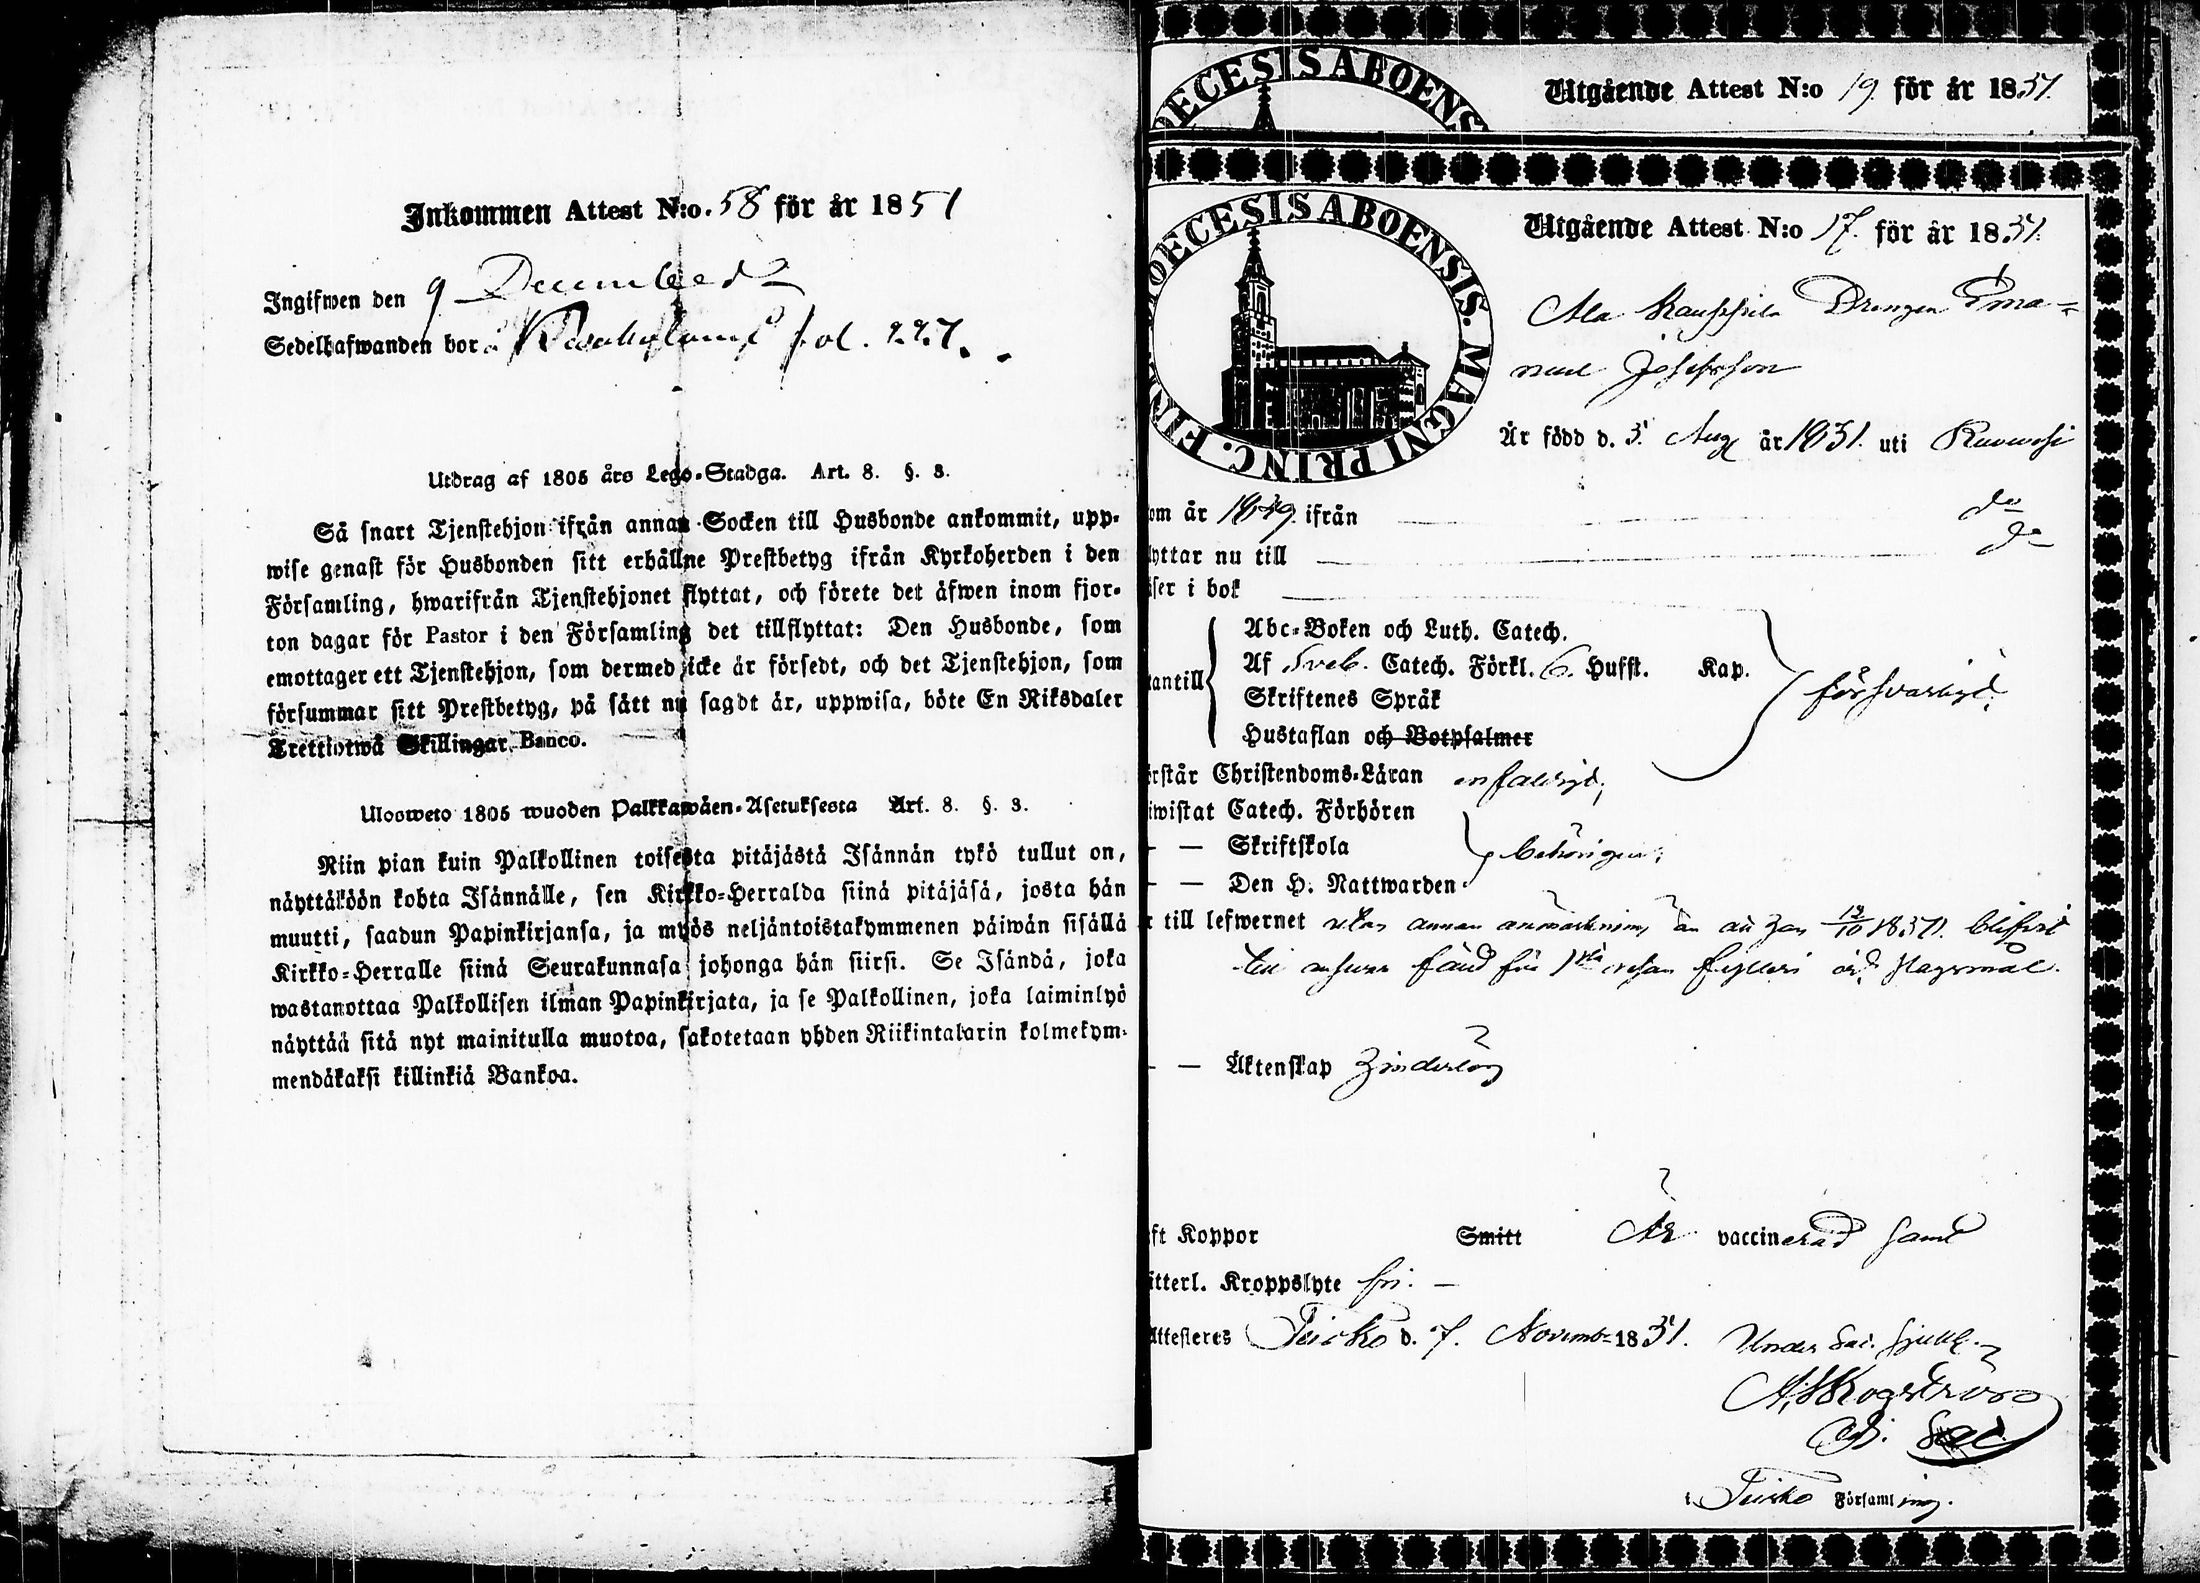 Inkommen Attest N:o. 58 för år 1851
Ingifwen den 9 December
Sedelhafwanden bor å fol. 227.
Utdrag af 1805 års Lego-Stadga. Art. 8. §. 3.
Så snart Tjenstehjon ifrån annan Socken till Husbonde ankommit, upp-
wise genast för Husbonden sitt erhållne Prestbetyg ifrån Kyrkoherden i den
Församling, hwarifrån Tjenstehjonet flyttat, och förete det äfwen inom fjor-
ton dagar för Pastor i den Församling det tillflyttat: Den Husbonde, som
emottager ett Tjenstehjon, som dermed icke är försedt, och det Tjenstehjon, som
försummar sitt Prestbetyg, på sätt nu sagdt är, uppwisa, böte En Riksdaler
Trettiotwå Skillingar Banco.
Ulosweto 1805 wuoden Palkkawäen-Asetuksesta Art. 8. §. 3.
Niin pian kuin Palkollinen toisesta pitäjästä Isännän tykö tullut on,
näyttäköön kohta Isännälle, sen Kirkko-Herralda siinä pitäjäsä, josta hän
muutti, saadun Papinkirjansa, ja myös neljäntoistakymmenen päiwän sisällä
Kirkko-Herralle siinä Seurakunnasa johonga hän siirsi. Se Isändä, joka
wastanottaa Palkollisen ilman Papinkirjata, ja se Palkollinen, joka laiminlyö
näyttää sitä nyt mainitulla muotoa, sakotetaan yhden Riikintalarin kolmekym-
mendäkaksi killinkiä Bankoa.
DECESIS ABOENS
Utgående Attest N:o 19. för år 1851.
DECESIS ABOENSIS. MAGNI PRINC. FIN
Utgående Attest N:o 17. för år 1851.
Ala Drengen Ema-
nuel Josefsson
Är född d. 5. Aug år 1831. uti Ruovesi
om år 1849. ifrån do
yttar nu till do
ser i bok
antill
Abc-Boken och Luth. Catech.
Af Sveb. Catech. Förkl. 6. Hufst. Kap.
Skriftenes Språk
Hustaflan och Botpsalmer
försvarligt;
rstår Christendoms-Läran enfaldigt;
iwistat Catech. Förhören
— — Skriftskola
— — Den H. Nattwarden
behörigen;
r till lefwernet utan annan anmärkning än att han 12/10 1851. blifvit
till ansvar fäld för 1sta resan fylleri och slagsmål.
— — Äktenskap hinderlös
ft Koppor Smitt Är vaccinerad samt
itterl. Kroppslyte fri. —
Attesteres Teisko d. 7. Novemb. 1851. Under
i Teisko Församling.